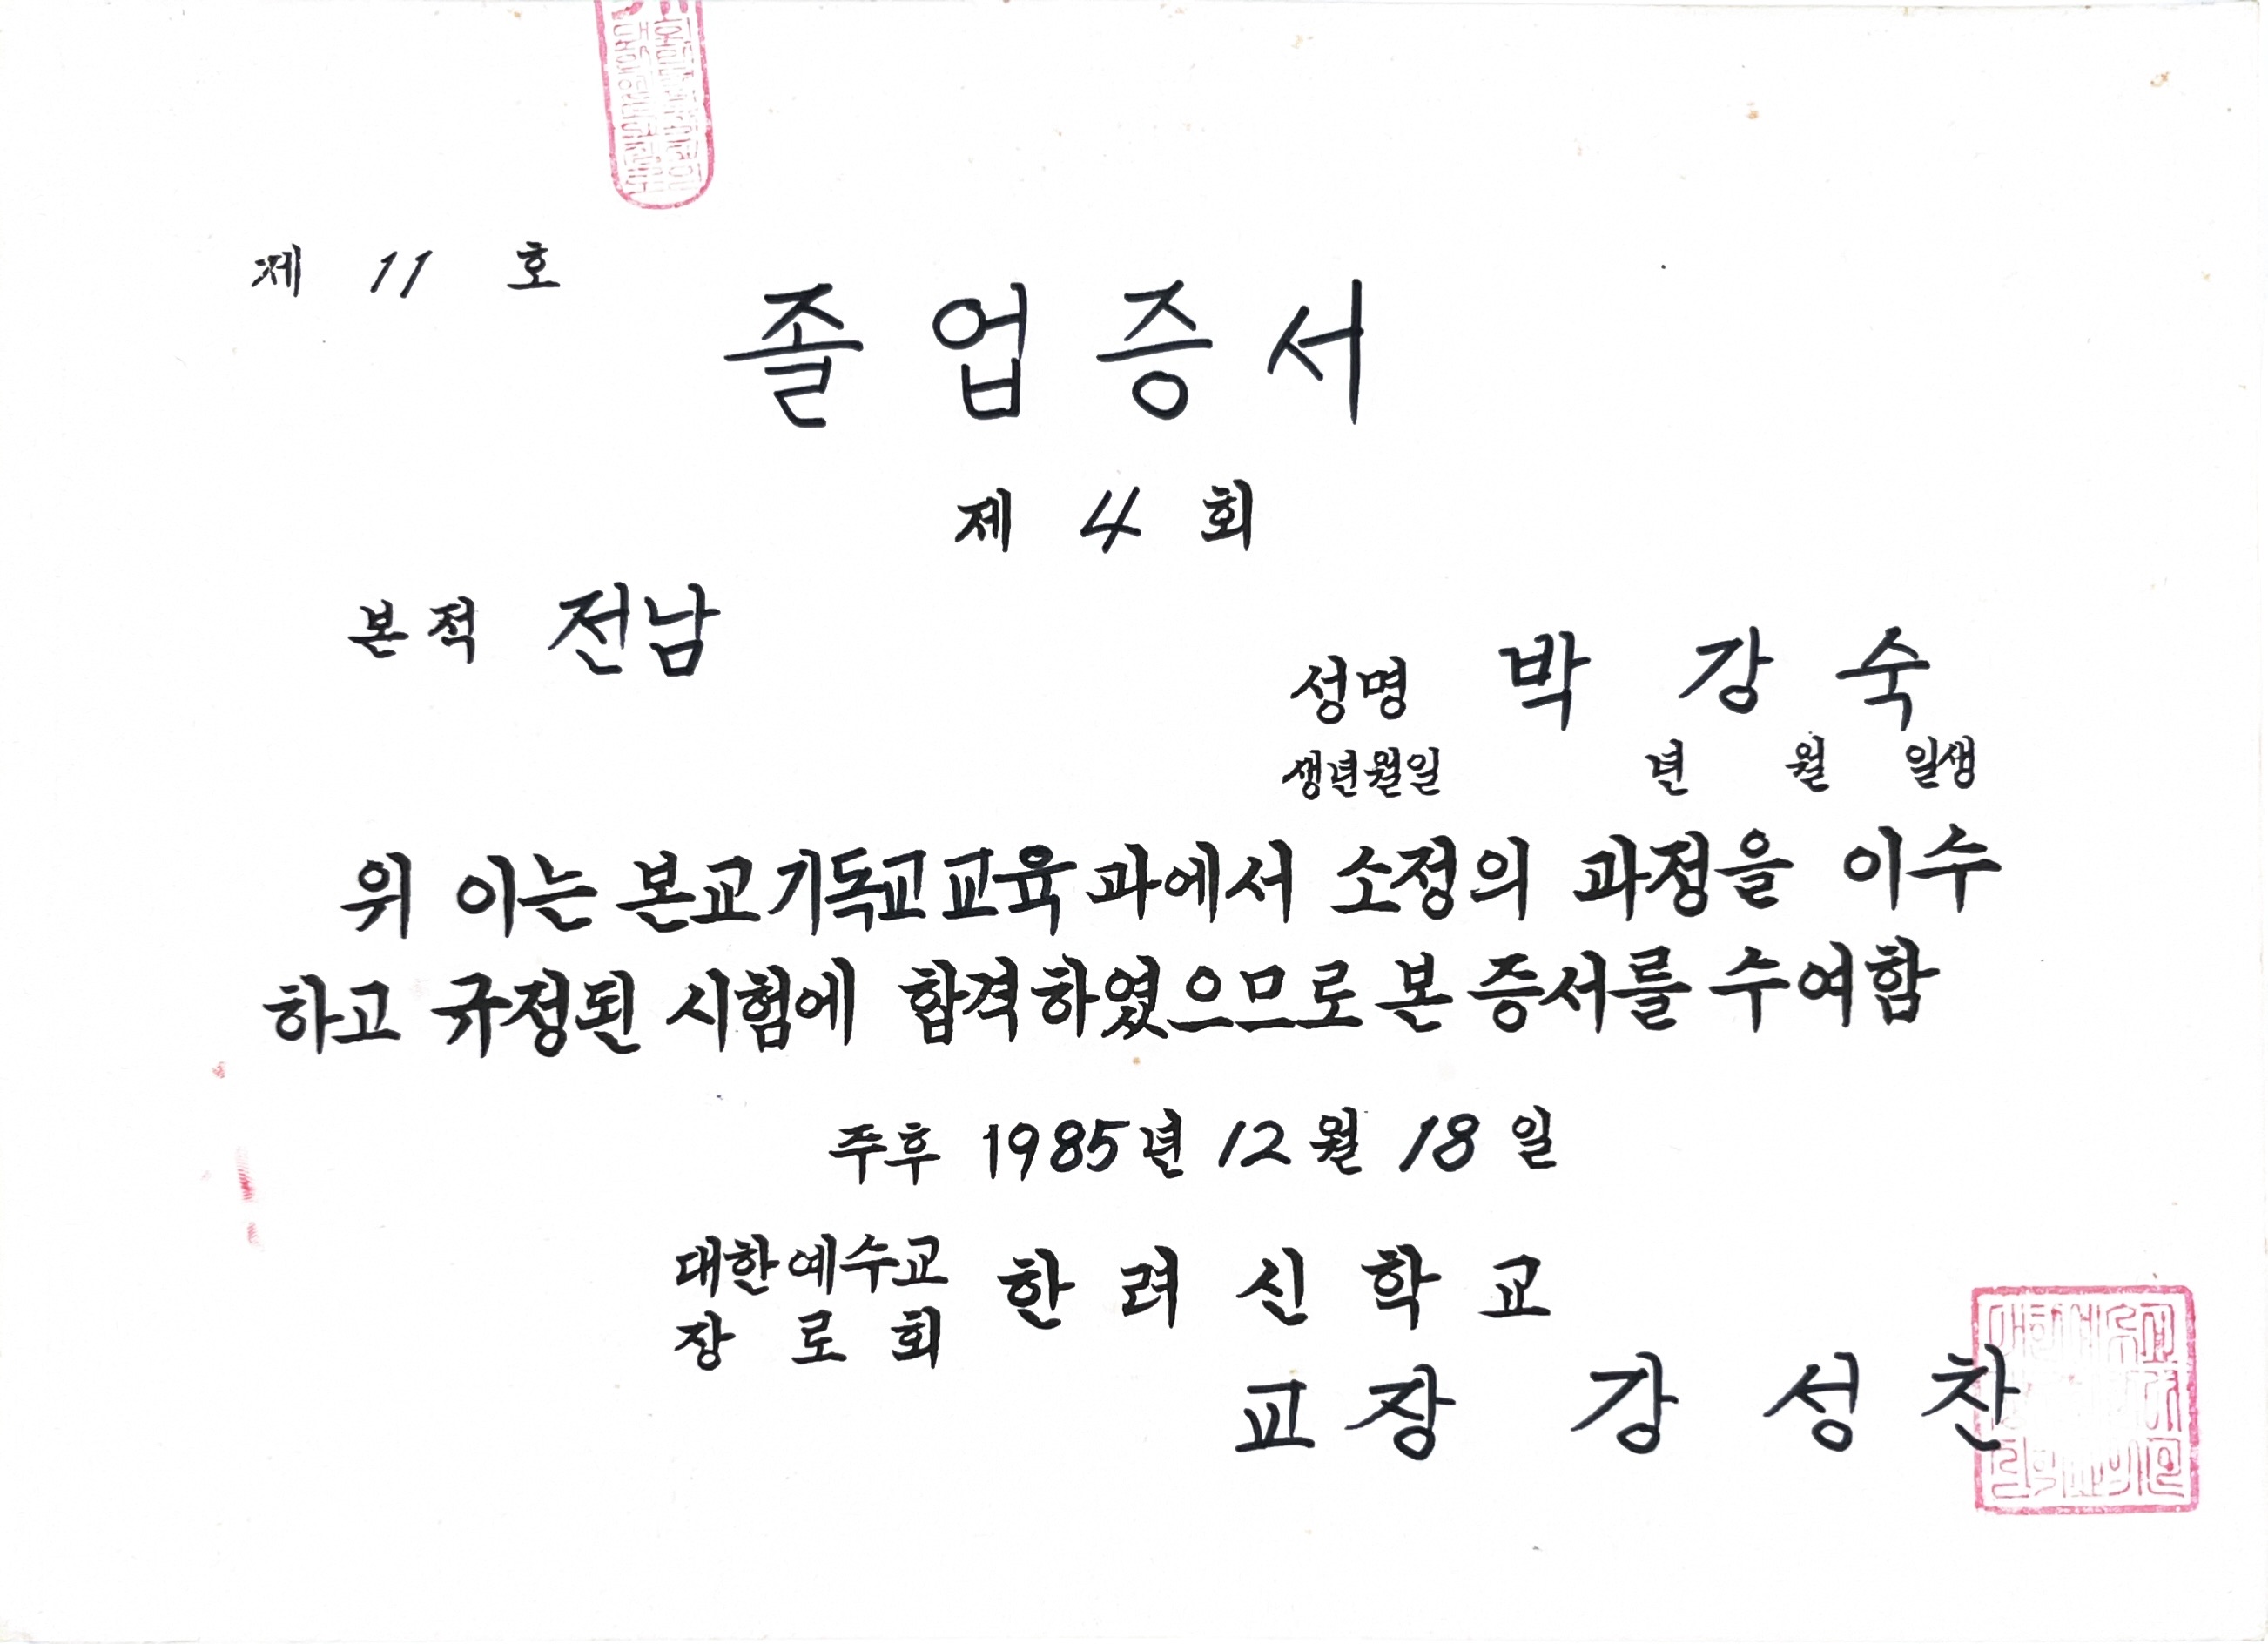 제 11 호
졸업증서
제 4 회
본적 전남
성명 박 강 숙
생년월일 년 월 일생
위 이는 본교 기독교교육과에서 소정의 과정을 이수
하고 규정된 시험에 합격하였으므로 본 증서를 수여함
주후 1985년 12월 18일
대한예수교
장로회 한려신학교
교장 강성찬